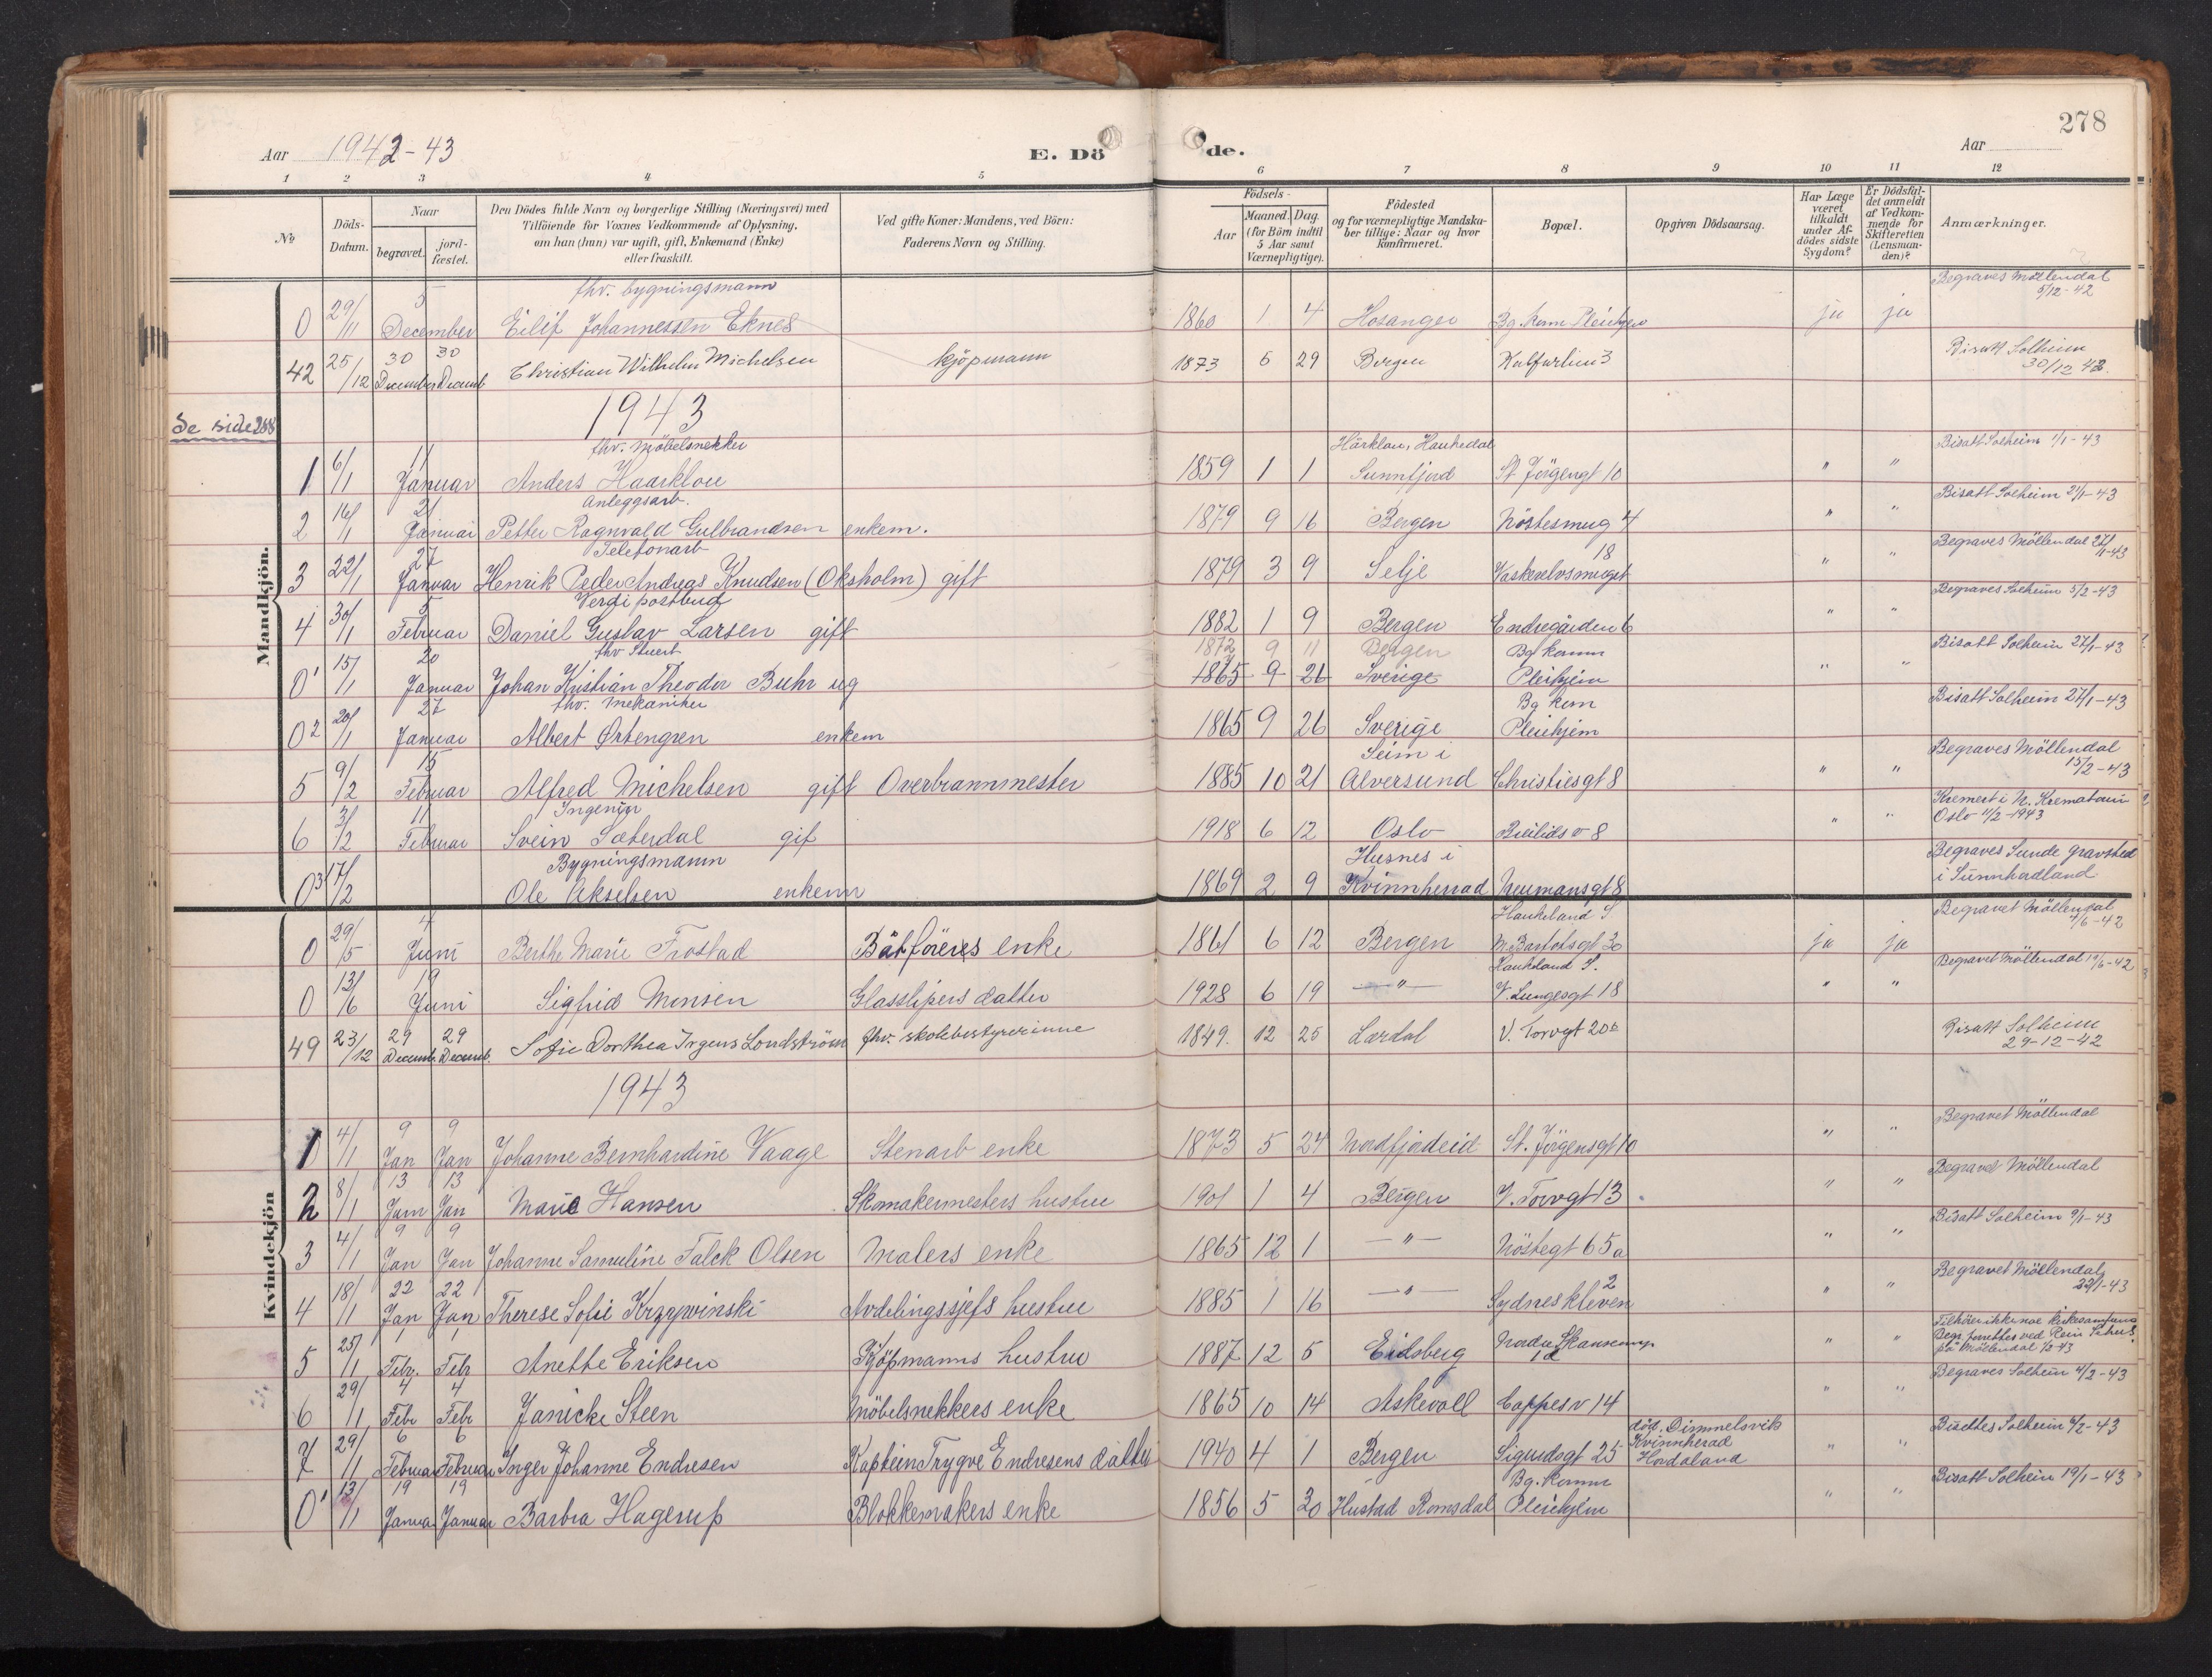 278
Aar 1942-43
E. Dö
de.
Aar
1 2 3 4 5 6 7 8 9 10 11 12
No
Döds-Datum.
Naar
begravet.
jord-fæstet.
Den Dödes fulde Navn og borgerlige Stilling (Næringsvei) med
Tilföiende for Voxnes Vedkommende af Oplysning,
om han (hun) var ugift, gift, Enkemand (Enke)
eller fraskilt.
Ved gifte Koner: Mandens, ved Börn:
Faderens Navn og Stilling.
Födsels-
Aar
Maaned. Dag.
(for Börn indtil
5 Aar samt
Værnepligtige).
Födested
og for værnepligtige Mandska-
ber tillige: Naar og hvor
Konfirmeret.
Bopæl.
Opgiven Dödsaarsag.
Har Læge
været
tilkaldt
under Af-
dödes sidste
Sygdom?
Er Dödsfal-
det anmeldt
af Vedkom-
mende for
Skifteretten
(Lensman-
den)?
Anmærkninger.
Mandkjön.
fhv. bygningsmann Begraves Möllendal
0 29/11 5 December Eilif Johannessen Eknes 1860 1 4 Hosanger Bg. kom Pleiehjem ja ja 5/12-42
42 25/12 30 December 30 Decemb Christian Wilhelm Michelsen kjöpmann 1873 5 29 Bergen Kalfarlien 3 Bisatt Solheim 30/12 42.
Se side 268
1943
fhv. Möbelsnekker Hårklau, Haukedal
1 6/1 11 Januar Anders Haarklou 1859 1 1 Sunnfjord St Jörgengt 10 " " Bisatt Solheim 11/1-43
Anleggsarb.
2 16/1 21 Januar Petter Ragnvald Gulbrandsen enkem. 1879 9 16 Bergen Nöstesmug 4 " " Bisatt Solheim 21/1-43
Telefonarb
3 22/1 27 Januar Henrik Peder Andreas Knudsen (Oksholm) gift 1879 3 9 Selje Vaskerelvsmuget 18 " " Begraves Möllendal 27/1-43
Verdi postbud
4 30/1 5 Februar Daniel Gustav Larsen gift 1882 1 9 Bergen Endregården 6 " " Begraves Solheim 5/2-43
fhv Stuert 1872 9 11 Bergen Bg komm
0¹ 15/1 20 Januar Johan Kristian Theodor Buhr ug 1865 9 26 Sverige Pleiehjem " " Bisatt Solheim 27/1-43
fhv. mekaniker Bg kom
0² 20/1 27 Januar Albert Ørtengren enkem 1865 9 26 Sverige Pleiehjem Bisatt Solheim 27/1-43
Seim i
5 9/2 15 Februar Alfred Michelsen gift Overbrannmester 1885 10 21 Alversund Christiesgt 8 " " Begraves Möllendal 15/2-43
Ingeniör
6 3/2 11 Februar Svein Sæterdal gif 1918 6 12 Oslo 8 " " Kremert i N. Krematorium Oslo 11/2-1943
Bygningsmann Husnes i
0³ 17/2 Ole Akselsen enkem 1869 2 9 Kvinnherrad Neumansgt 8 Begraves Sunde gravsted i Sunnhordland
Kvindekjön
Haukeland S
0 29/5 4 Juni Berthe Marie Frostad Båtföreres enke 1861 6 12 Bergen 30 ja ja Begravet Möllendal 4/6-42
Haukeland S.
0 13/6 19 Juni Sigfrid Monsen Glasslipers datter 1928 6 19 — " — V. Lungesgt 18 " " Begravet Möllendal 19/6-42
49 23/12 29 Decemb. 29 Decemb. Sofie Dorthea Irgens Londström fhv. skolebestyrerinne 1849. 12 25 Lærdal V. Torvgt 20 Bisatt Solheim 29-12-42
1943
1 4/1 9 Jan 9 Jan Johanne Bernhardine Vaage Stenarb enke 1873 5 24 Nordfjordeid St. Jörgensgt 10 " " Begravet Möllendal
2 8/1 13 Jan 13 Jan Marie Hansen Skomakermesters hustru 1901 1 4 Bergen V. Torvgt 13 " " Begravet Möllendal
3 4/1 9 Jan 9 Jan Johanne Samueline Falck Olsen Malers enke 1865 12 1 — " — Nöstegt 65a " " Bisatt Solheim 9/1-43
4 18/1 22 Jan 22 Jan Therese Sofie Krzywinski Avdelingssjefs hustru 1885 1 16 — " — Sydneskleven 2 " " Begravet Möllendal 22/1-43
5 25/1 1 Febr. 1 Febr Anette Eriksen Kjöpmanns hustru 1887 12 5 Eidsberg Nordre Skansemyr 12 " " Tilhörer ikke noe kirkesamfund Begr. forrettes ved på Möllendal 1/2-43
6 29/1 4 Febr 4 Febr Janicke Steen Möbelsnekkers enke 1865 10 14 Askevoll Cappes v 14 " " Begraves Solheim 4/2-43
7 29/1 6 Februar 6 Februar Inger Johanne Endresen Kaptein Trygve Endresens datter 1940 4 1 Bergen Sigurdsgt 25 död. Dimmelsvik Kvinnherad Hordaland " " Bisettes Solheim 6/2-43
Bg. komm
0¹ 13/1 19 Januar 19 Januar Barbra Hagerup Blokkemakers enke 1856 5 30 Hustad Romsdal Pleiehjem " " Bisatt Solheim 19/1-43